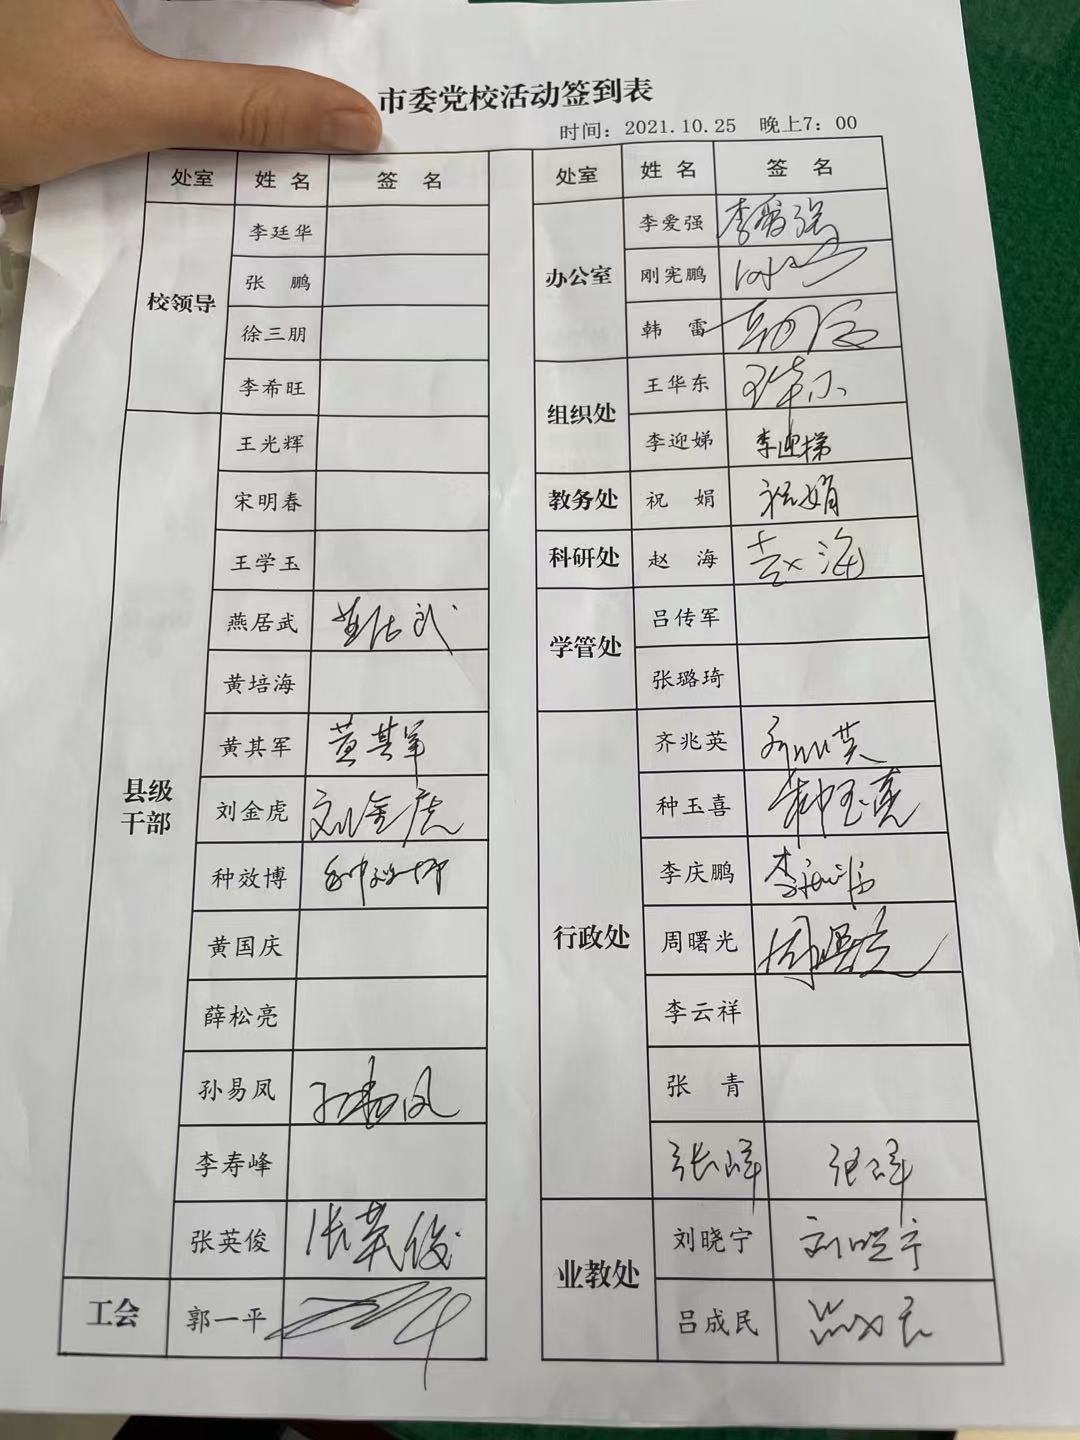 市委党校活动签到表
时间：2021.10.25 晚上7：00
处室 姓名 签名
校领导
李廷华
张鹏
徐三朋
李希旺
县级干部
王光辉
宋明春
王学玉
燕居武
黄培海
黄其军 黄其军
刘金虎 刘金虎
种效博
黄国庆
薛松亮
孙易凤 孙易凤
李寿峰
张英俊 张英俊
工会
郭一平
处室 姓名 签名
办公室
李爱强 李爱强
刚宪鹏
韩雷
组织处
王华东 王华东
李迎娣 李迎娣
教务处
祝娟 祝娟
科研处
赵海 赵海
学管处
吕传军
张璐琦
行政处
齐兆英 齐兆英
种玉喜 种玉喜
李庆鹏
周曙光 周曙光
李云祥
张青
张峰 张峰
业教处
刘晓宁 刘晓宁
吕成民 吕成民